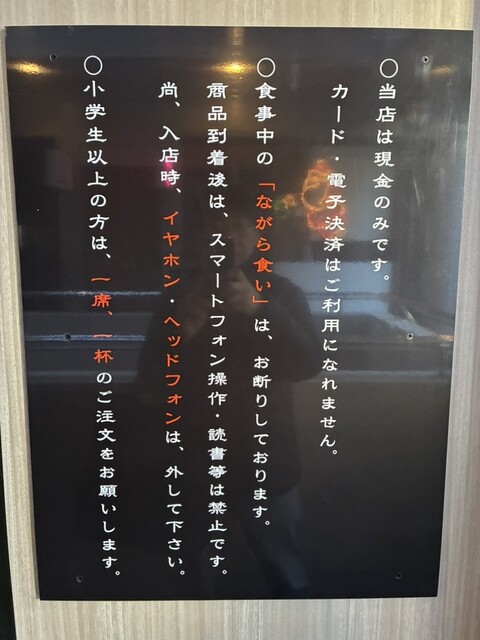 〇当店は現金のみです。
カード・電子決済はご利用になれません。
〇食事中の「ながら食い」は、お断りしております。
商品到着後は、スマートフォン操作・読書等は禁止です。
尚、入店時、イヤホン・ヘッドフォンは、外して下さい。
〇小学生以上の方は、一席、一杯のご注文をお願いします。